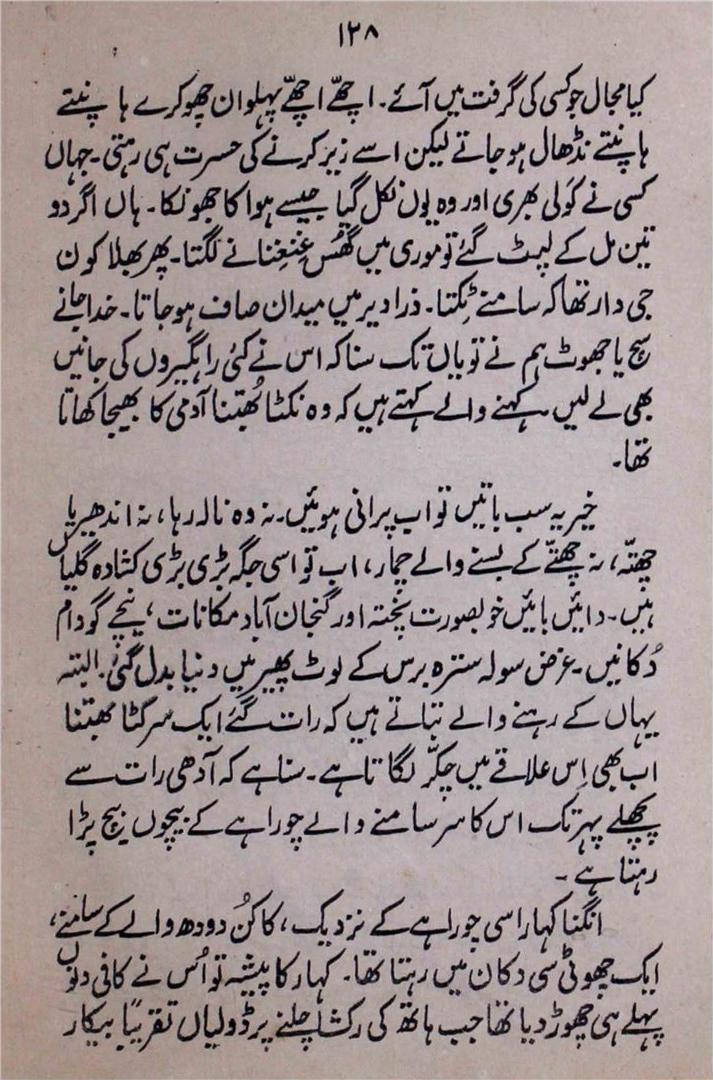 ۱۲۸
کیا مجال جو کسی کی گرفت میں آئے۔ اچھے اچھے پہلوان چھوکرے ہا پنتے
ہا پنتے نڈھال ہو جاتے لیکن اسے زیر کرنے کی حسرت ہی رہتی۔ جہاں
کسی نے کَولی بھری اور وہ یوں نکل گیا جیسے ہوا کا جھونکا۔ ہاں اگر دو
تین مل کے لپٹ گئے تو موری میں گھُس غِنغِنانے لگتا۔ پھر بھلا کون
جی دار تھا کہ سامنے ٹِکتا۔ ذرا دیر میں میدان صاف ہو جاتا۔ خدا جانے
سچ یا جھوٹ ہم نے تو یاں تک سنا کہ اس نے کئی راہگیروں کی جانیں
بھی لے لیں۔ کہنے والے کہتے ہیں کہ وہ نکٹا بُھتنا آدمی کا بھیجا کھاتا
تھا۔
خیر یہ سب باتیں تو اب پرانی ہوئیں۔ نہ وہ نالہ رہا، نہ اندھیریا
چھتّہ، نہ چھتّے کے بسنے والے چمار، اب تو اسی جگہ بڑی بڑی کشادہ گلیاں
ہیں۔ دائیں بائیں خوبصورت پختہ اور گنجان آباد مکانات، نیچے گودام
دُکانیں۔ غرض سولہ سترہ برس کے لوٹ پھیر میں دنیا بدل گئی۔ البتہ
یہاں کے رہنے والے بتاتے ہیں کہ رات گئے ایک سرکٹا بھتنا
اب بھی اِس علاقے میں چکّر لگاتا ہے۔ سنا ہے کہ آدھی رات سے
پچھلے پہر تک اس کا سر سامنے والے چوراہے کے بیچوں بیچ پڑا
رہتا ہے۔
انگنا کہار اسی چوراہے کے نزدیک، کاکُن دودھ والے کے سامنے،
ایک چھوٹی سی دکان میں رہتا تھا۔ کہار کا پیشہ تو اُس نے کافی دنوں
پہلے ہی چھوڑ دیا تھا جب ہاتھ کی رکشا چلنے پر ڈولیاں تقریباً بیکار